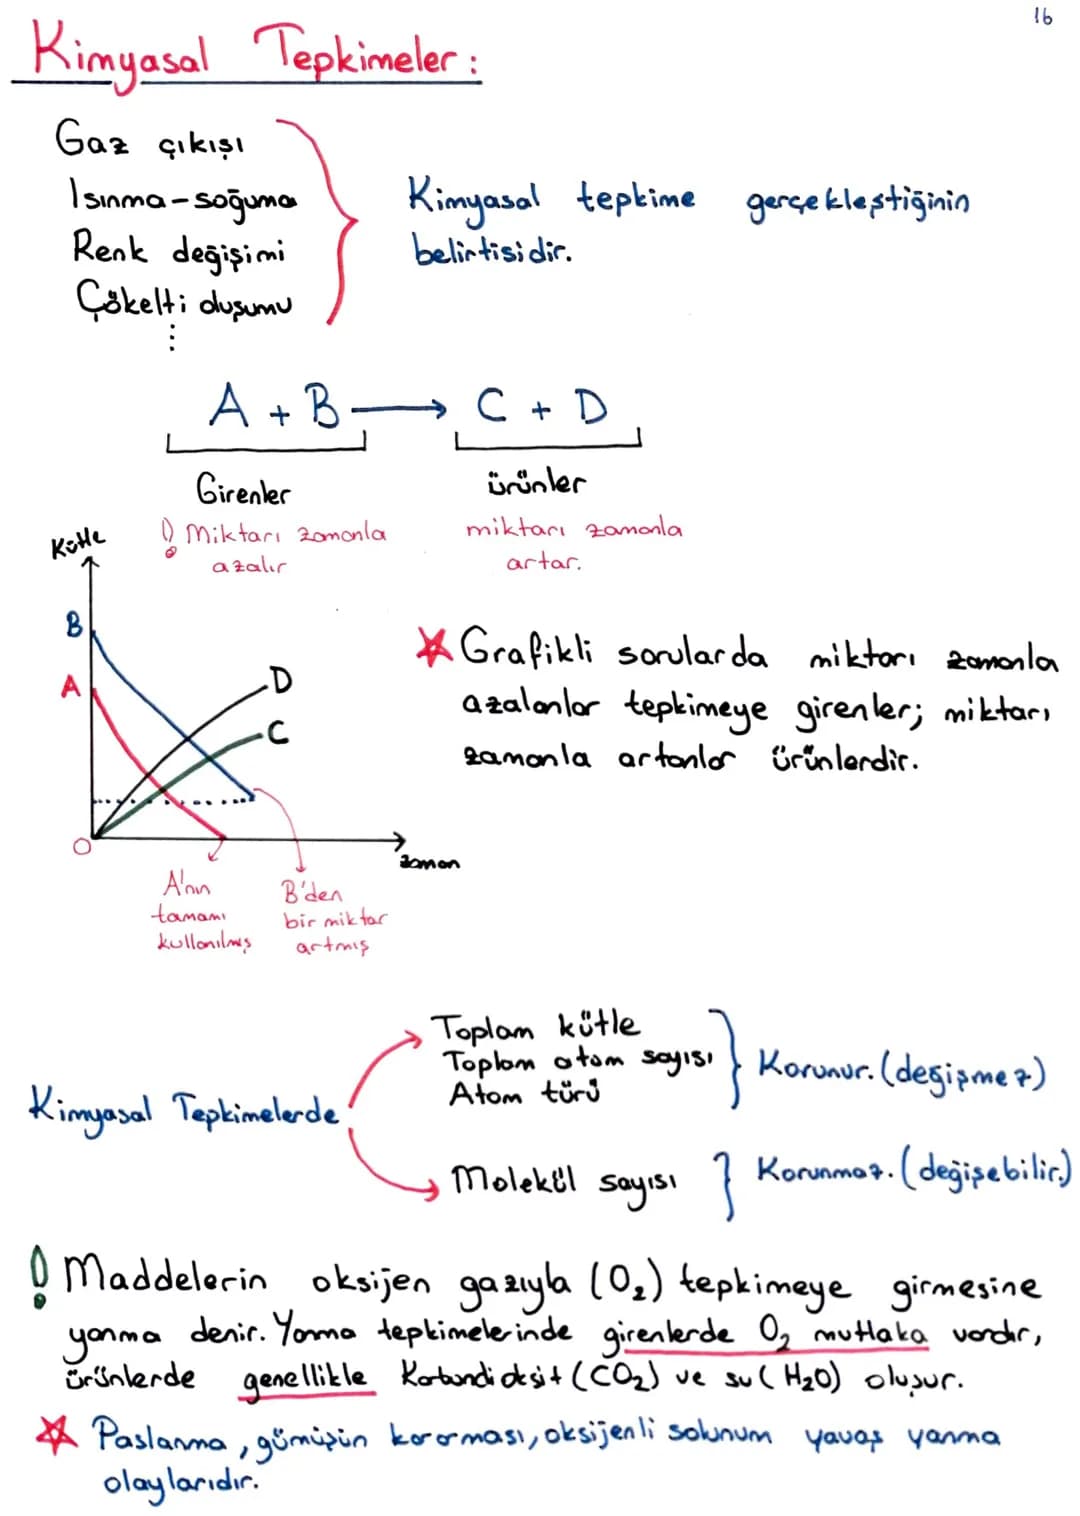 16
Kimyasal Tepkimeler:
Gaz çıkışı
Isınma-soğuma
Renk değişimi
Çökelti oluşumu
⋮
Kimyasal tepkime gerçekleştiğinin
belirtisidir.
A + B → C + D
Girenler
ürünler
! Miktarı zamanla
azalır
miktarı zamanla
artar.
Kütle
B
A
D
C
O
zaman
A'nın
tamamı
kullanılmış
B'den
bir miktar
artmış
☆ Grafikli sorularda miktarı zamanla
azalanlar tepkimeye girenler; miktarı
zamanla artanlar ürünlerdir.
Kimyasal Tepkimelerde
Toplam kütle
Toplam atom sayısı
Atom türü
Korunur. (değişmez)
Molekül sayısı
Korunmaz. (değişebilir.)
! Maddelerin oksijen gazıyla (O₂) tepkimeye girmesine
yanma denir. Yanma tepkimelerinde girenlerde O₂ mutlaka vardır,
ürünlerde genellikle Karbondioksit (CO₂) ve su (H₂O) oluşur.
☆ Paslanma, gümüşün kararması, oksijenli solunum yavaş yanma
olaylarıdır.